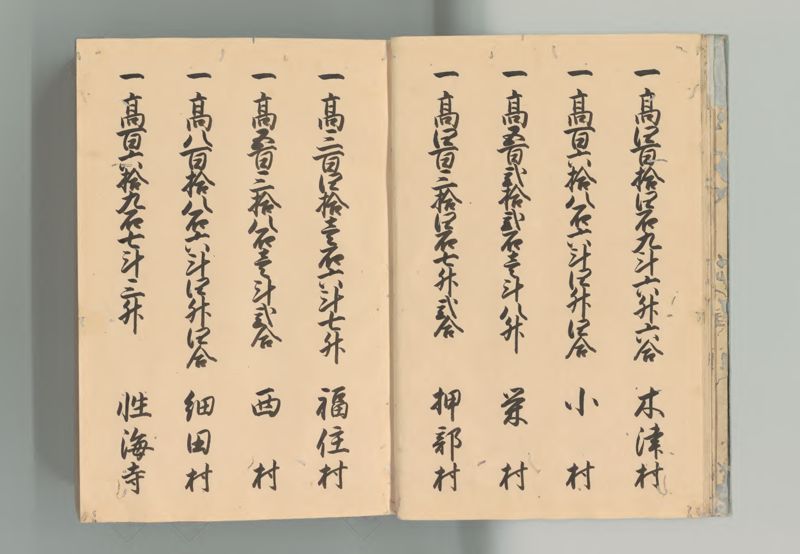 一高四百拾四石九斗六升六合 木津村
一高百六拾八石六斗四升四合 小村
一高五百弐拾弐石壱斗八升 栄村
一高四百三拾四石七升弐合 押部村
一高三百四拾壱石六斗七升 福住村
一高五百三拾八石壱斗弐合 西村
一高八百拾八石六斗四升四合 細田村
一高百六拾九石七斗三升 性海寺